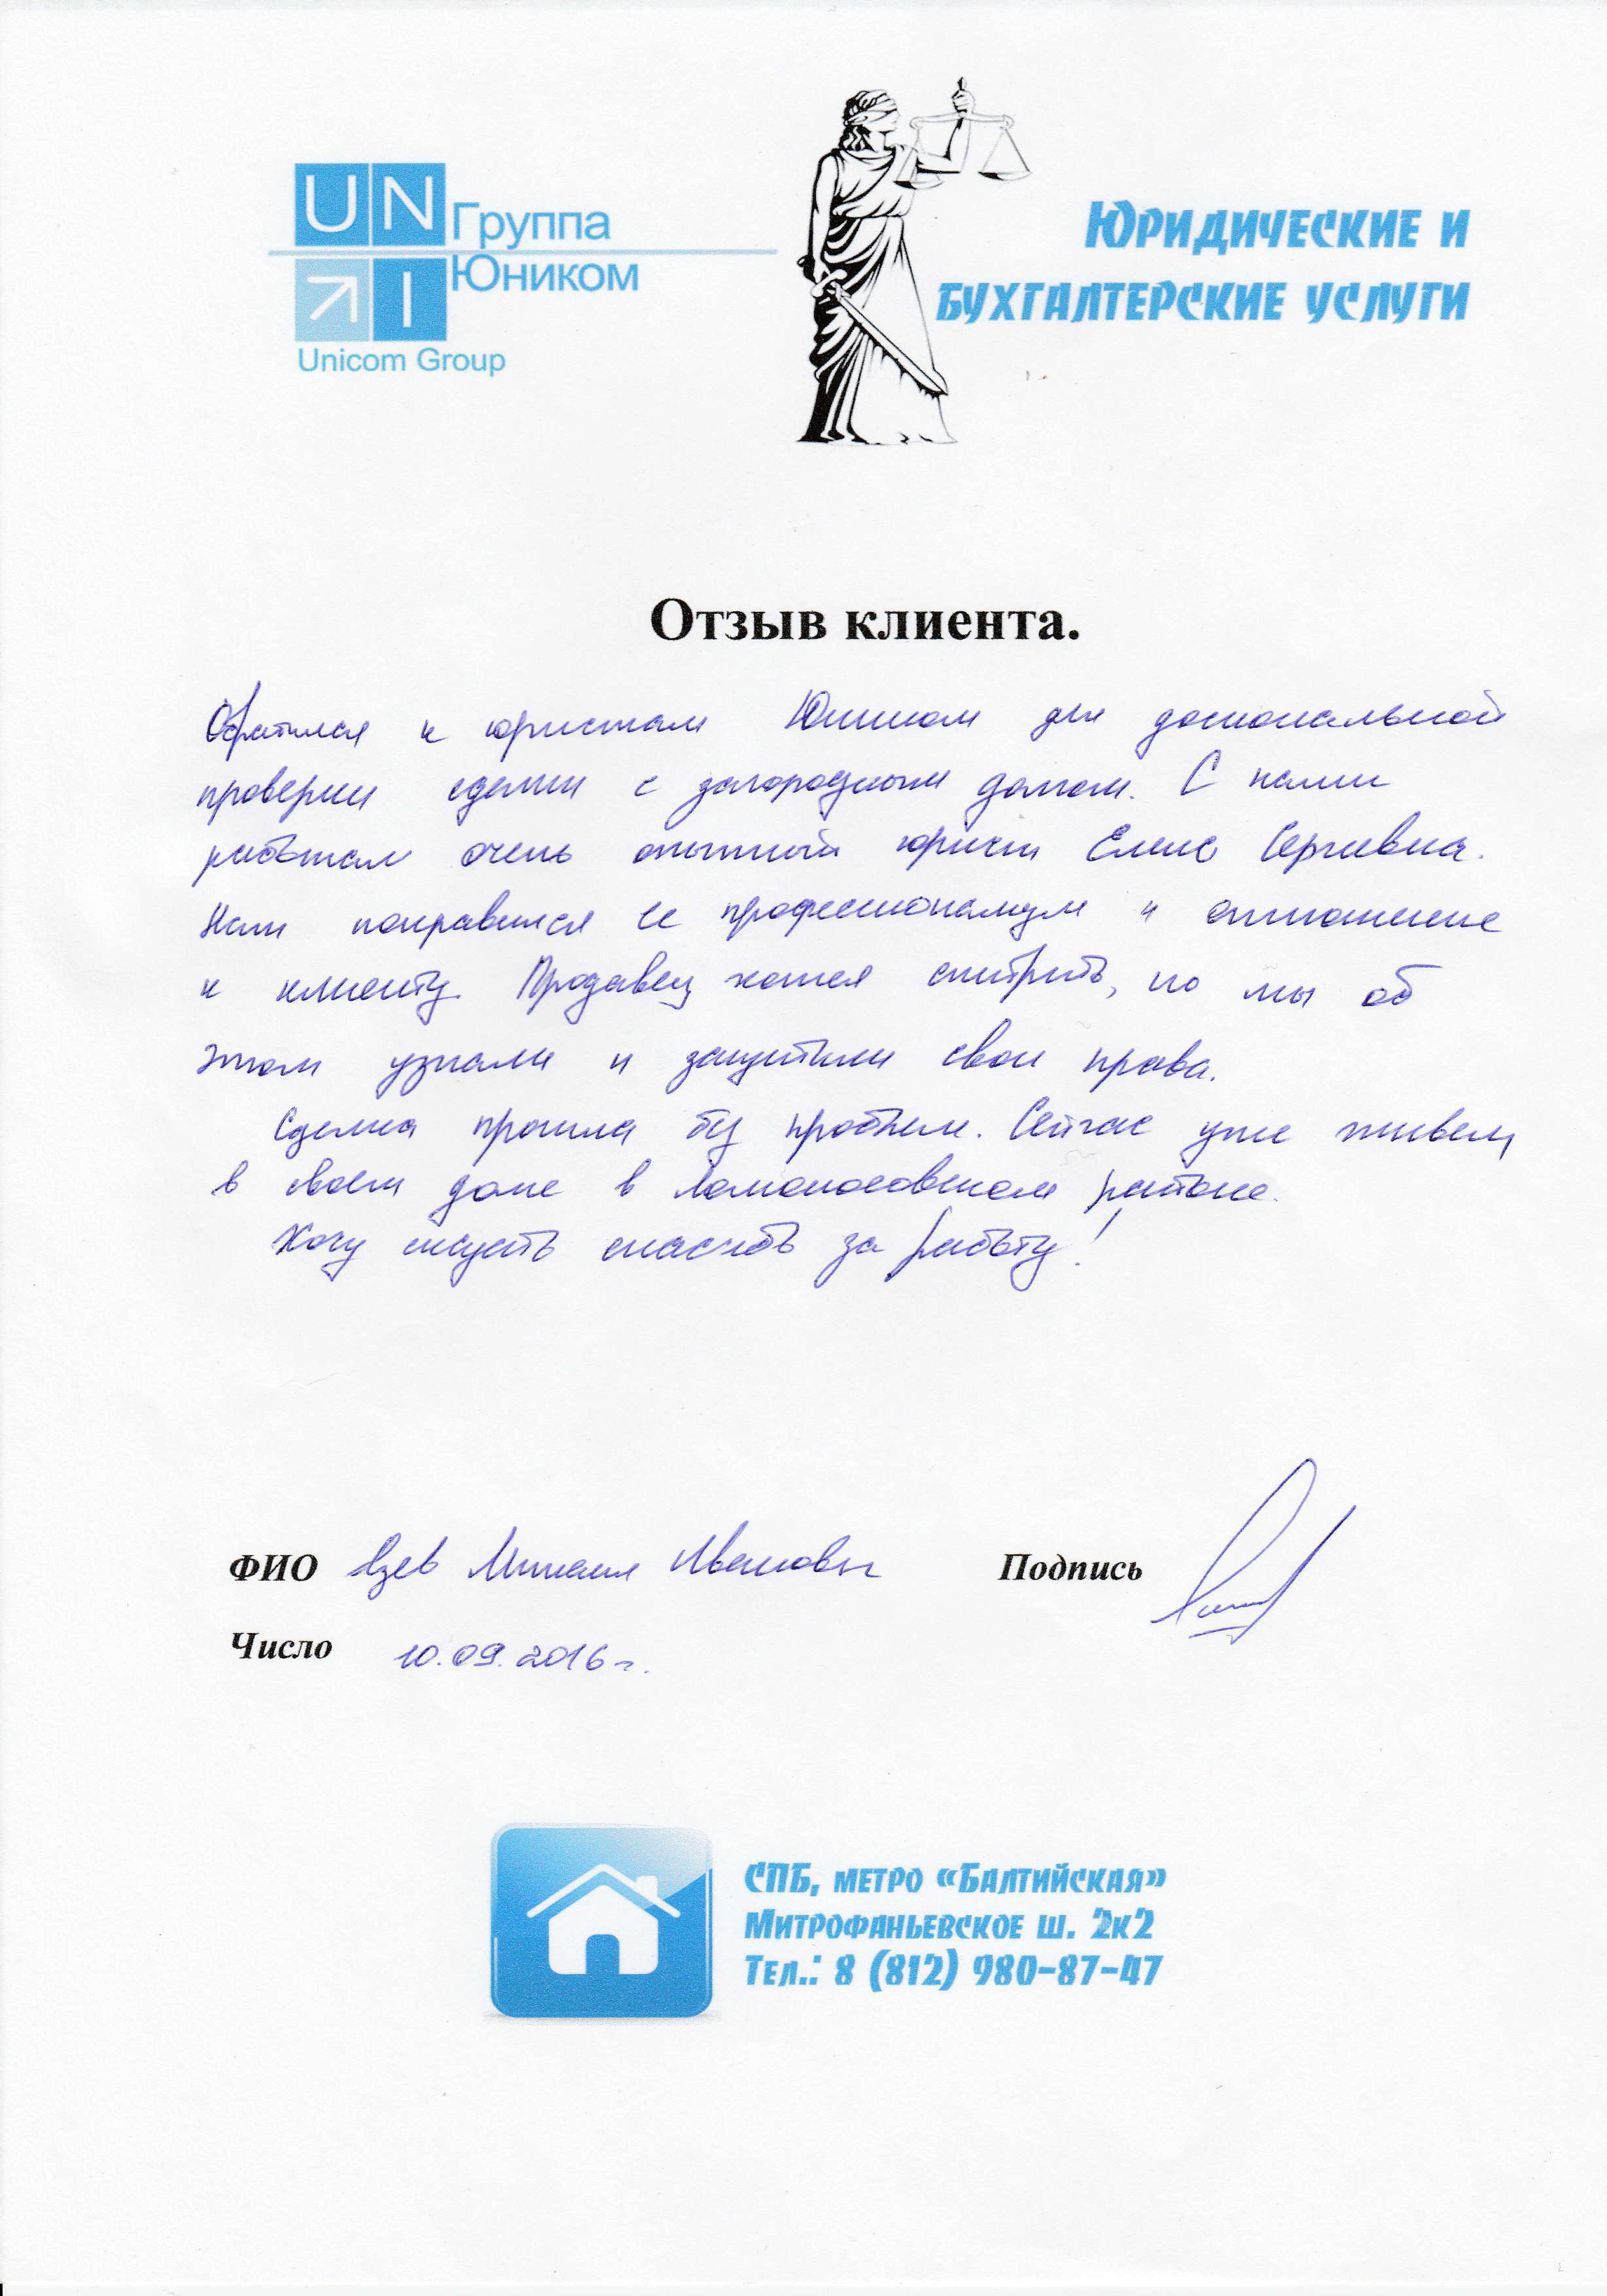 UN
Группа
Юником
I
Unicom Group
Юридические и
бухгалтерские услуги
Отзыв клиента.
Обратился к юристам Юником для досконольной
проверки сделки с загородным домом. С нами
работал очень опытный юрист Елена Сергеевна.
Нам понравился ее профессионализм и отношение
к клиенту. Продавец хотел схитрить, но мы об
этом узнали и защитили свои права.
Сделка прошла без проблем. Сейчас уже живем
в своем доме в Ломоносовском районе.
Хочу сказать спасибо за работу!
ФИО Михаил Иванович Подпись
Число 10.09.2016 г.
СПБ, метро «Балтийская»
Митрофаньевское ш. 2к2
Тел.: 8 (812) 980-87-47